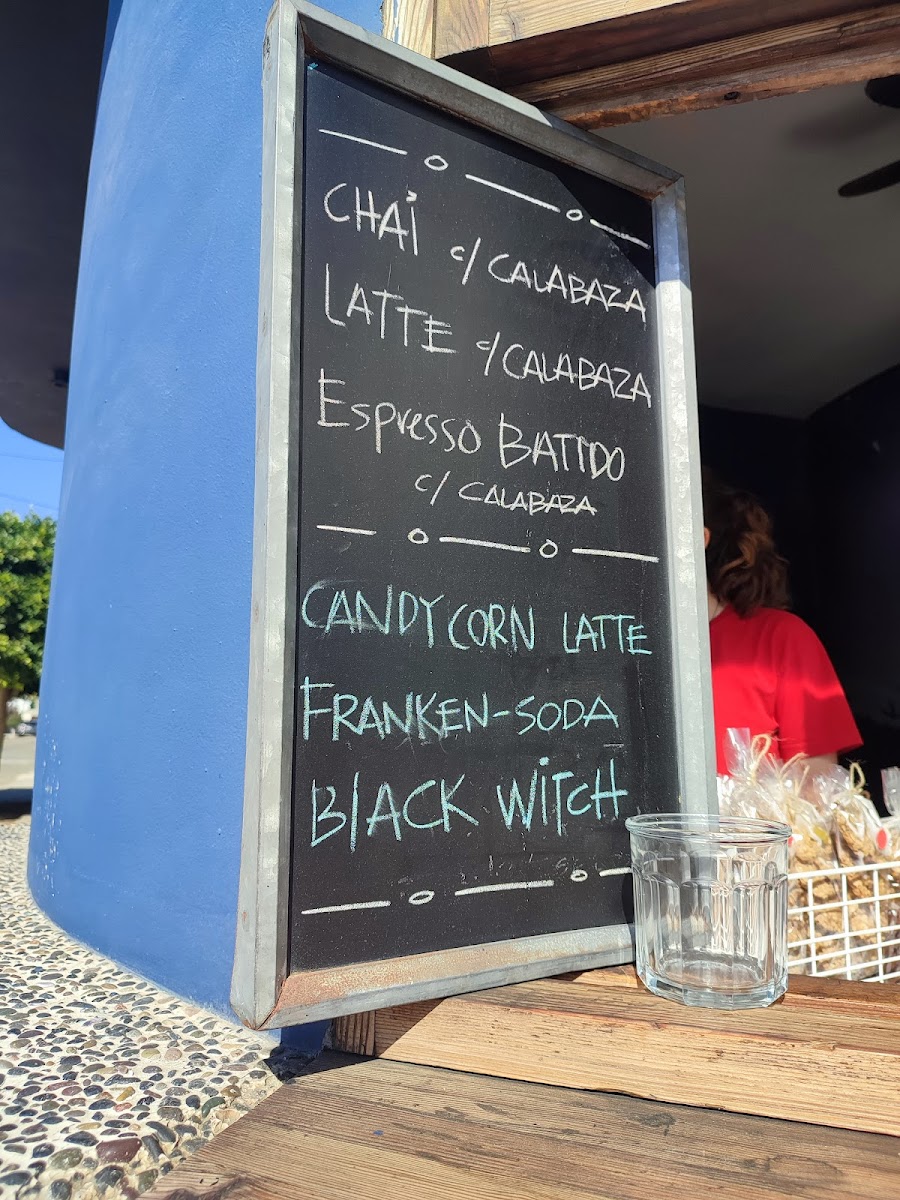 CHAi c/ CALABAZA
LATTE c/ CALABAZA
Espresso BATIDO
c/ CALABAZA
CANDY CORN LATTE
FRANKEN-SODA
BlACK WiTCH